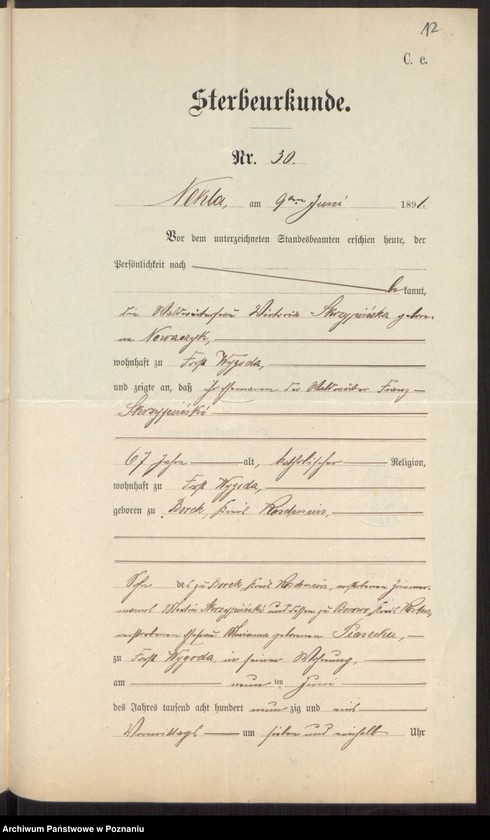 12
C. c.
Sterbeurkunde.
Nr. 30.
Nekla, am 9ten Juni 1891.
Vor dem unterzeichneten Standesbeamten erschien heute, der
Persönlichkeit nach
be kannt,
die Waldwärterfrau Victoria Skrzypińska gebore-
ne Nowaczyk,
wohnhaft zu Forst Wygoda,
und zeigte an, daß ihr Ehemann der Waldwärter Franz
Skrzypiński
67 Jahre alt, katholischer Religion,
wohnhaft zu Forst Wygoda,
geboren zu Borek, Kreis
Sohn des zu Borek, Kreis verstorbenen
Skrzypiński und zu Kreis
verstorbenen Ehefrau Marianna geborenen
zu Forst Wygoda, in seiner Wohnung,
am neun ten Juni
des Jahres tausend acht hundert neun zig und eins
Vormittags um sieben und einhalb Uhr
Archiwum Państwowe w Poznaniu